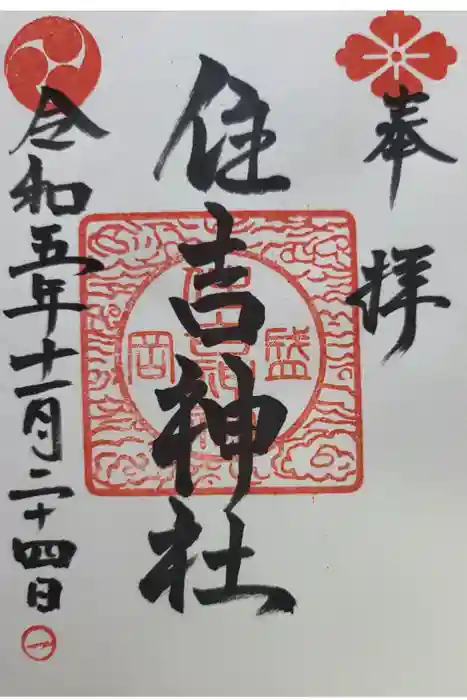 奉拝
住吉神社
盛
岡
令和五年十一月二十四日